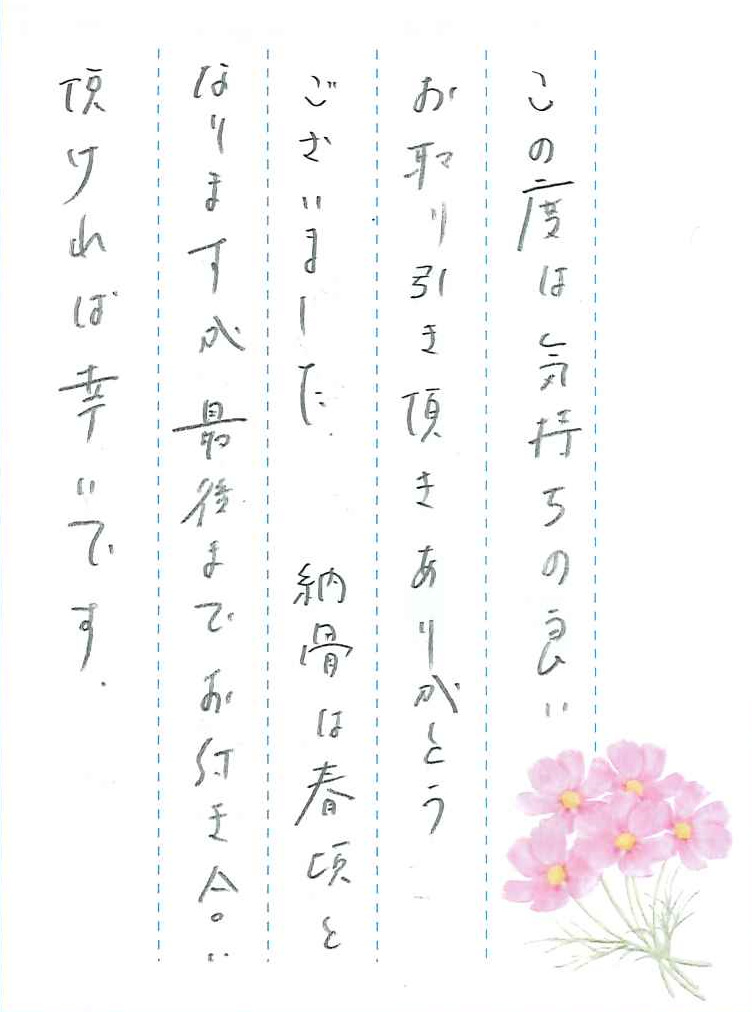 この度は気持ちの良い
お取り引き頂きありがとう
ございました.　納骨は春頃と
なりますが最後までお付き合い
頂ければ幸いです.